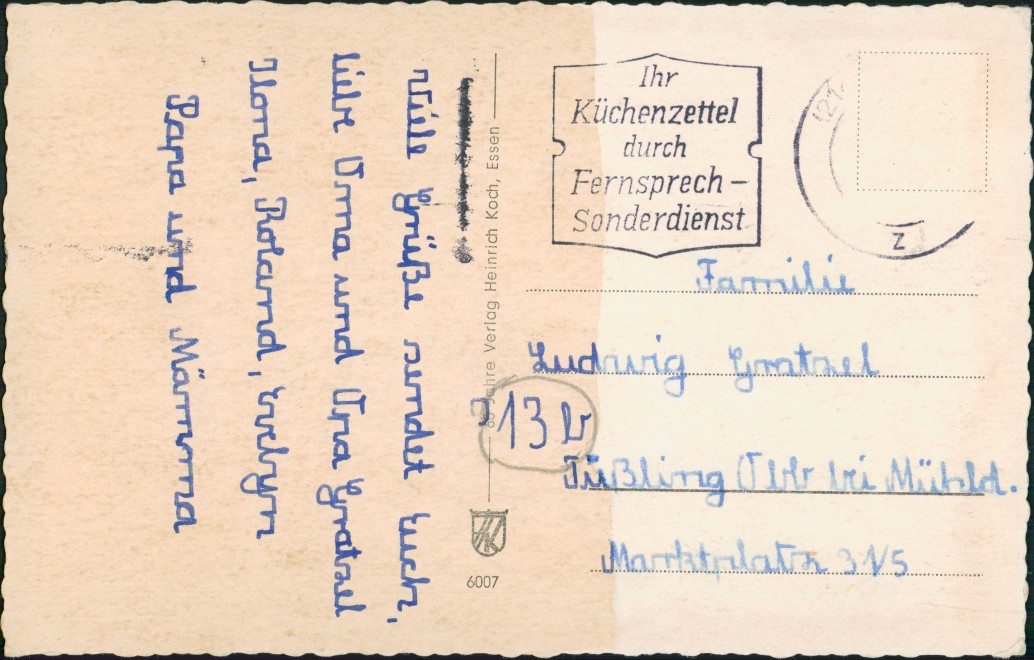 Viele Grüße sendet Euch,
liebe Oma und Opa Gratzel
Ilona, Roland, Evelyn
Papa und Mämma
60 Jahre Verlag Heinrich Koch, Essen
6007
Ihr
Küchenzettel
durch
Fernsprech-
Sonderdienst
Z
Familie
Ludwig Gratzel
13b
Tüßling Obb bei Mühld.
Marktplatz 31/5